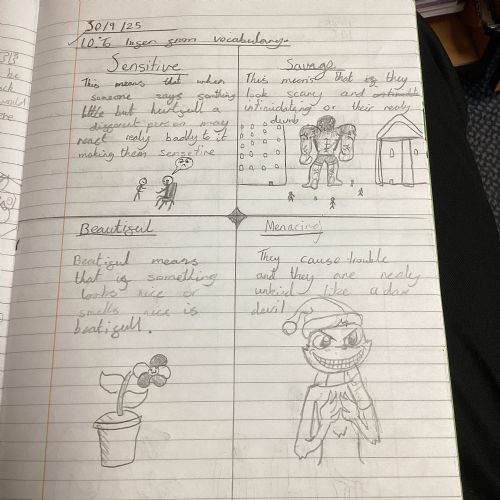 30/9/25
L.O: To infer from vocabulary.
Sensitive
This means that when
someone says somthing
little but hurtfull a
different person may
react really badly to it
making them sensetive
Savage
This means that they
look scary and
intimidating or their realy
dumb
Beautiful
Beatiful means
that is something
looks nice or
smells nice is
beatifull.
Menacing
They cause trouble
and they are realy
unkind like a
devil